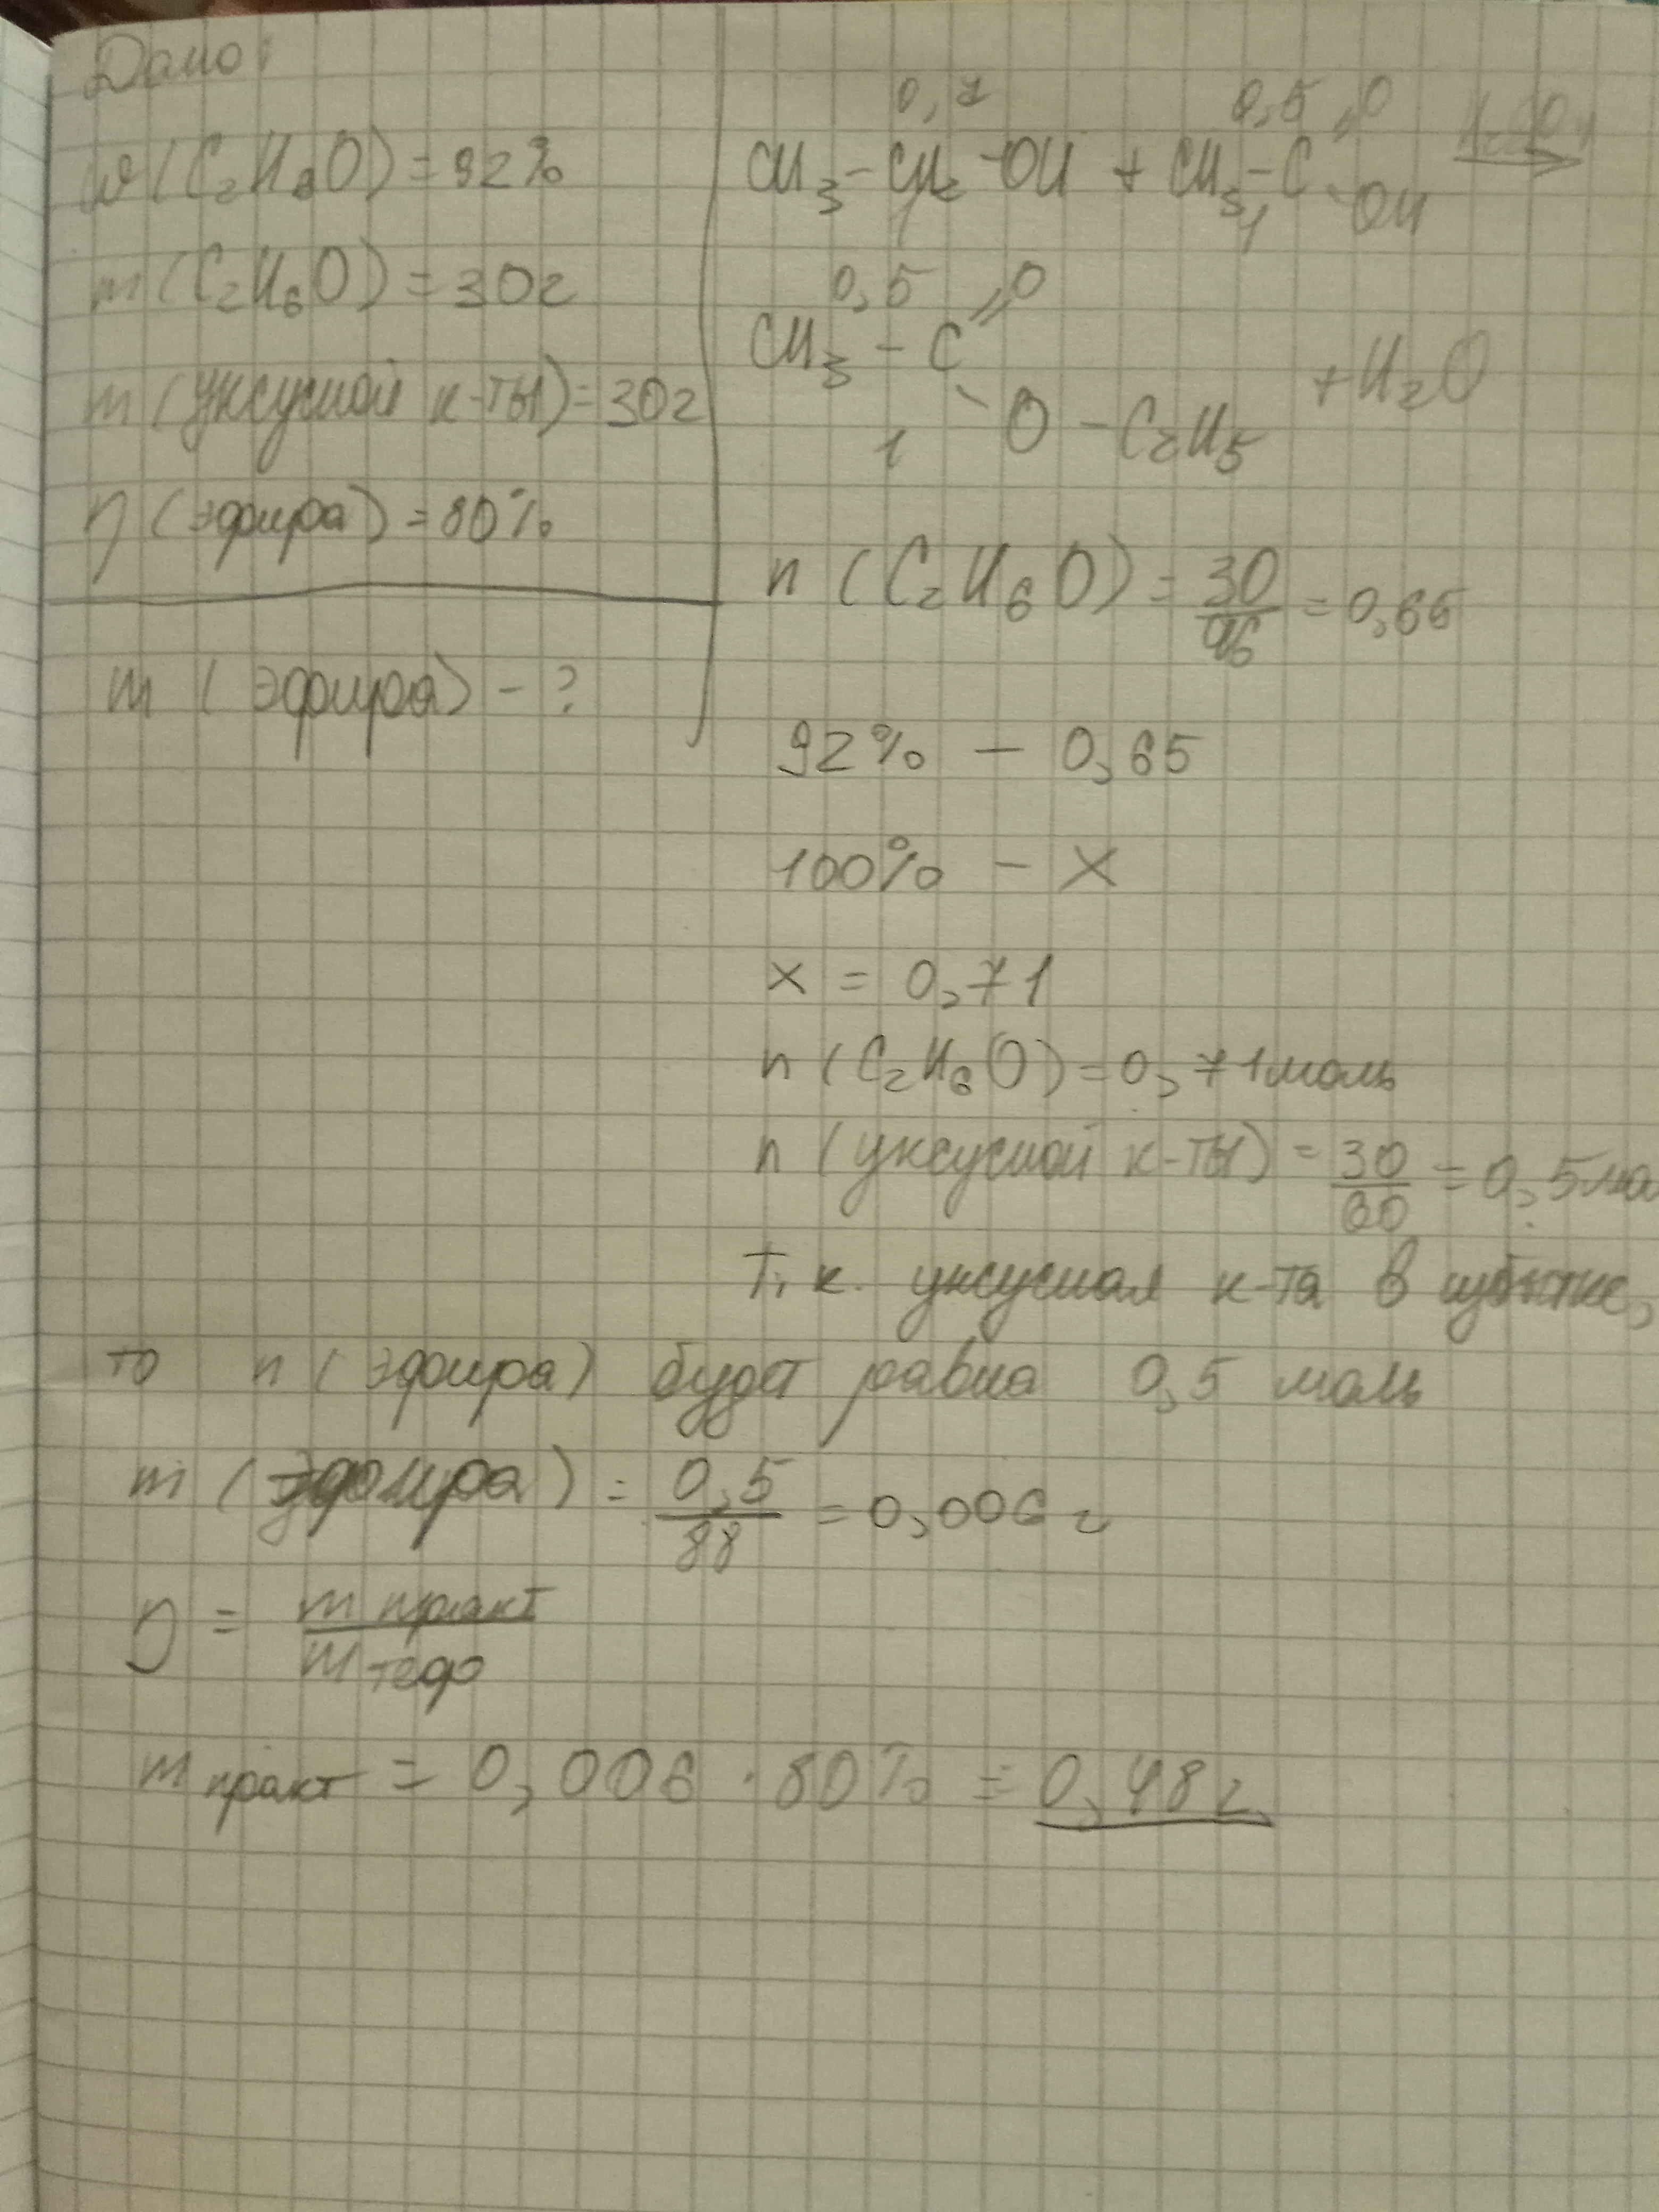 Дано:
w(C2H6O)=92%
m(C2H6O)=30г
m(уксусной к-ты)=30г
η(эфира)=80%
m(эфира)-?
0,7 0,5 O
CH3-CH2-OH + CH3-C
1 1 OH
0,5 O
CH3-C +H2O
1 O-C2H5
n(C2H6O)=30/46=0,65
92% - 0,65
100% - x
x = 0,71
n(C2H6O)=0,71моль
n(уксусной к-ты)=30/60=0,5мо
Т.к. уксусная к-та в убытке,
то n(эфира) будет равна 0,5 моль
m(эфира)=0,5/88=0,006г
η=m практ/m теор
m практ = 0,006·80%=0,48г